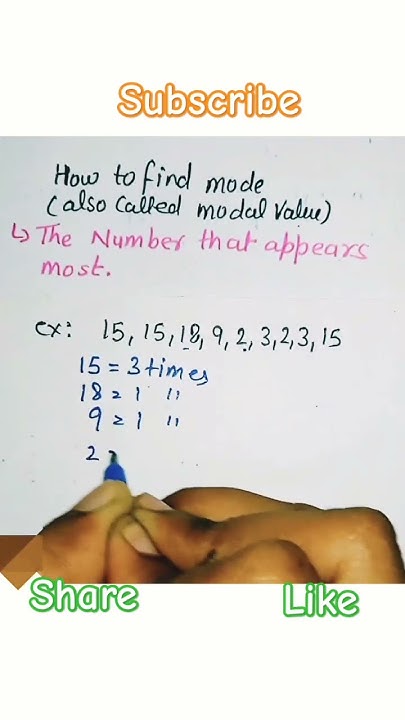 Subscribe
How to find mode
(also called modal value)
↳ The Number that appears
most.
ex: 15, 15, 18, 9, 2, 3, 2, 3, 15
15 = 3 times
18 = 1 "
9 = 1 "
2 =
Share
Like